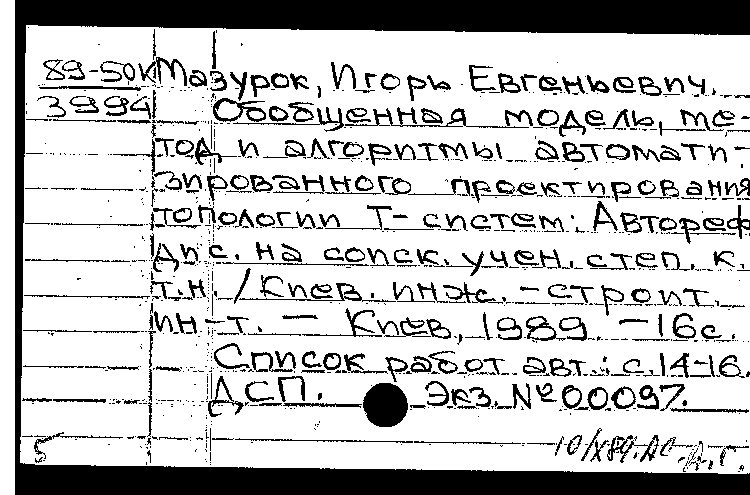 89-50к Мазурок, Игорь Евгеньевич.
3994 Обобщенная модель, ме-
тод и алгоритмы автомати-
зированного проектирования
топологии Т-систем: Автореф
дис. на соиск. учен. степ. к.
т.н. / Киев. инж.-строит.
ин-т. — Киев, 1989. — 16с.
Список работ авт.: с.14-16.
ДСП. Экз. №00097.
5 10/X89. АС-Д.Г.